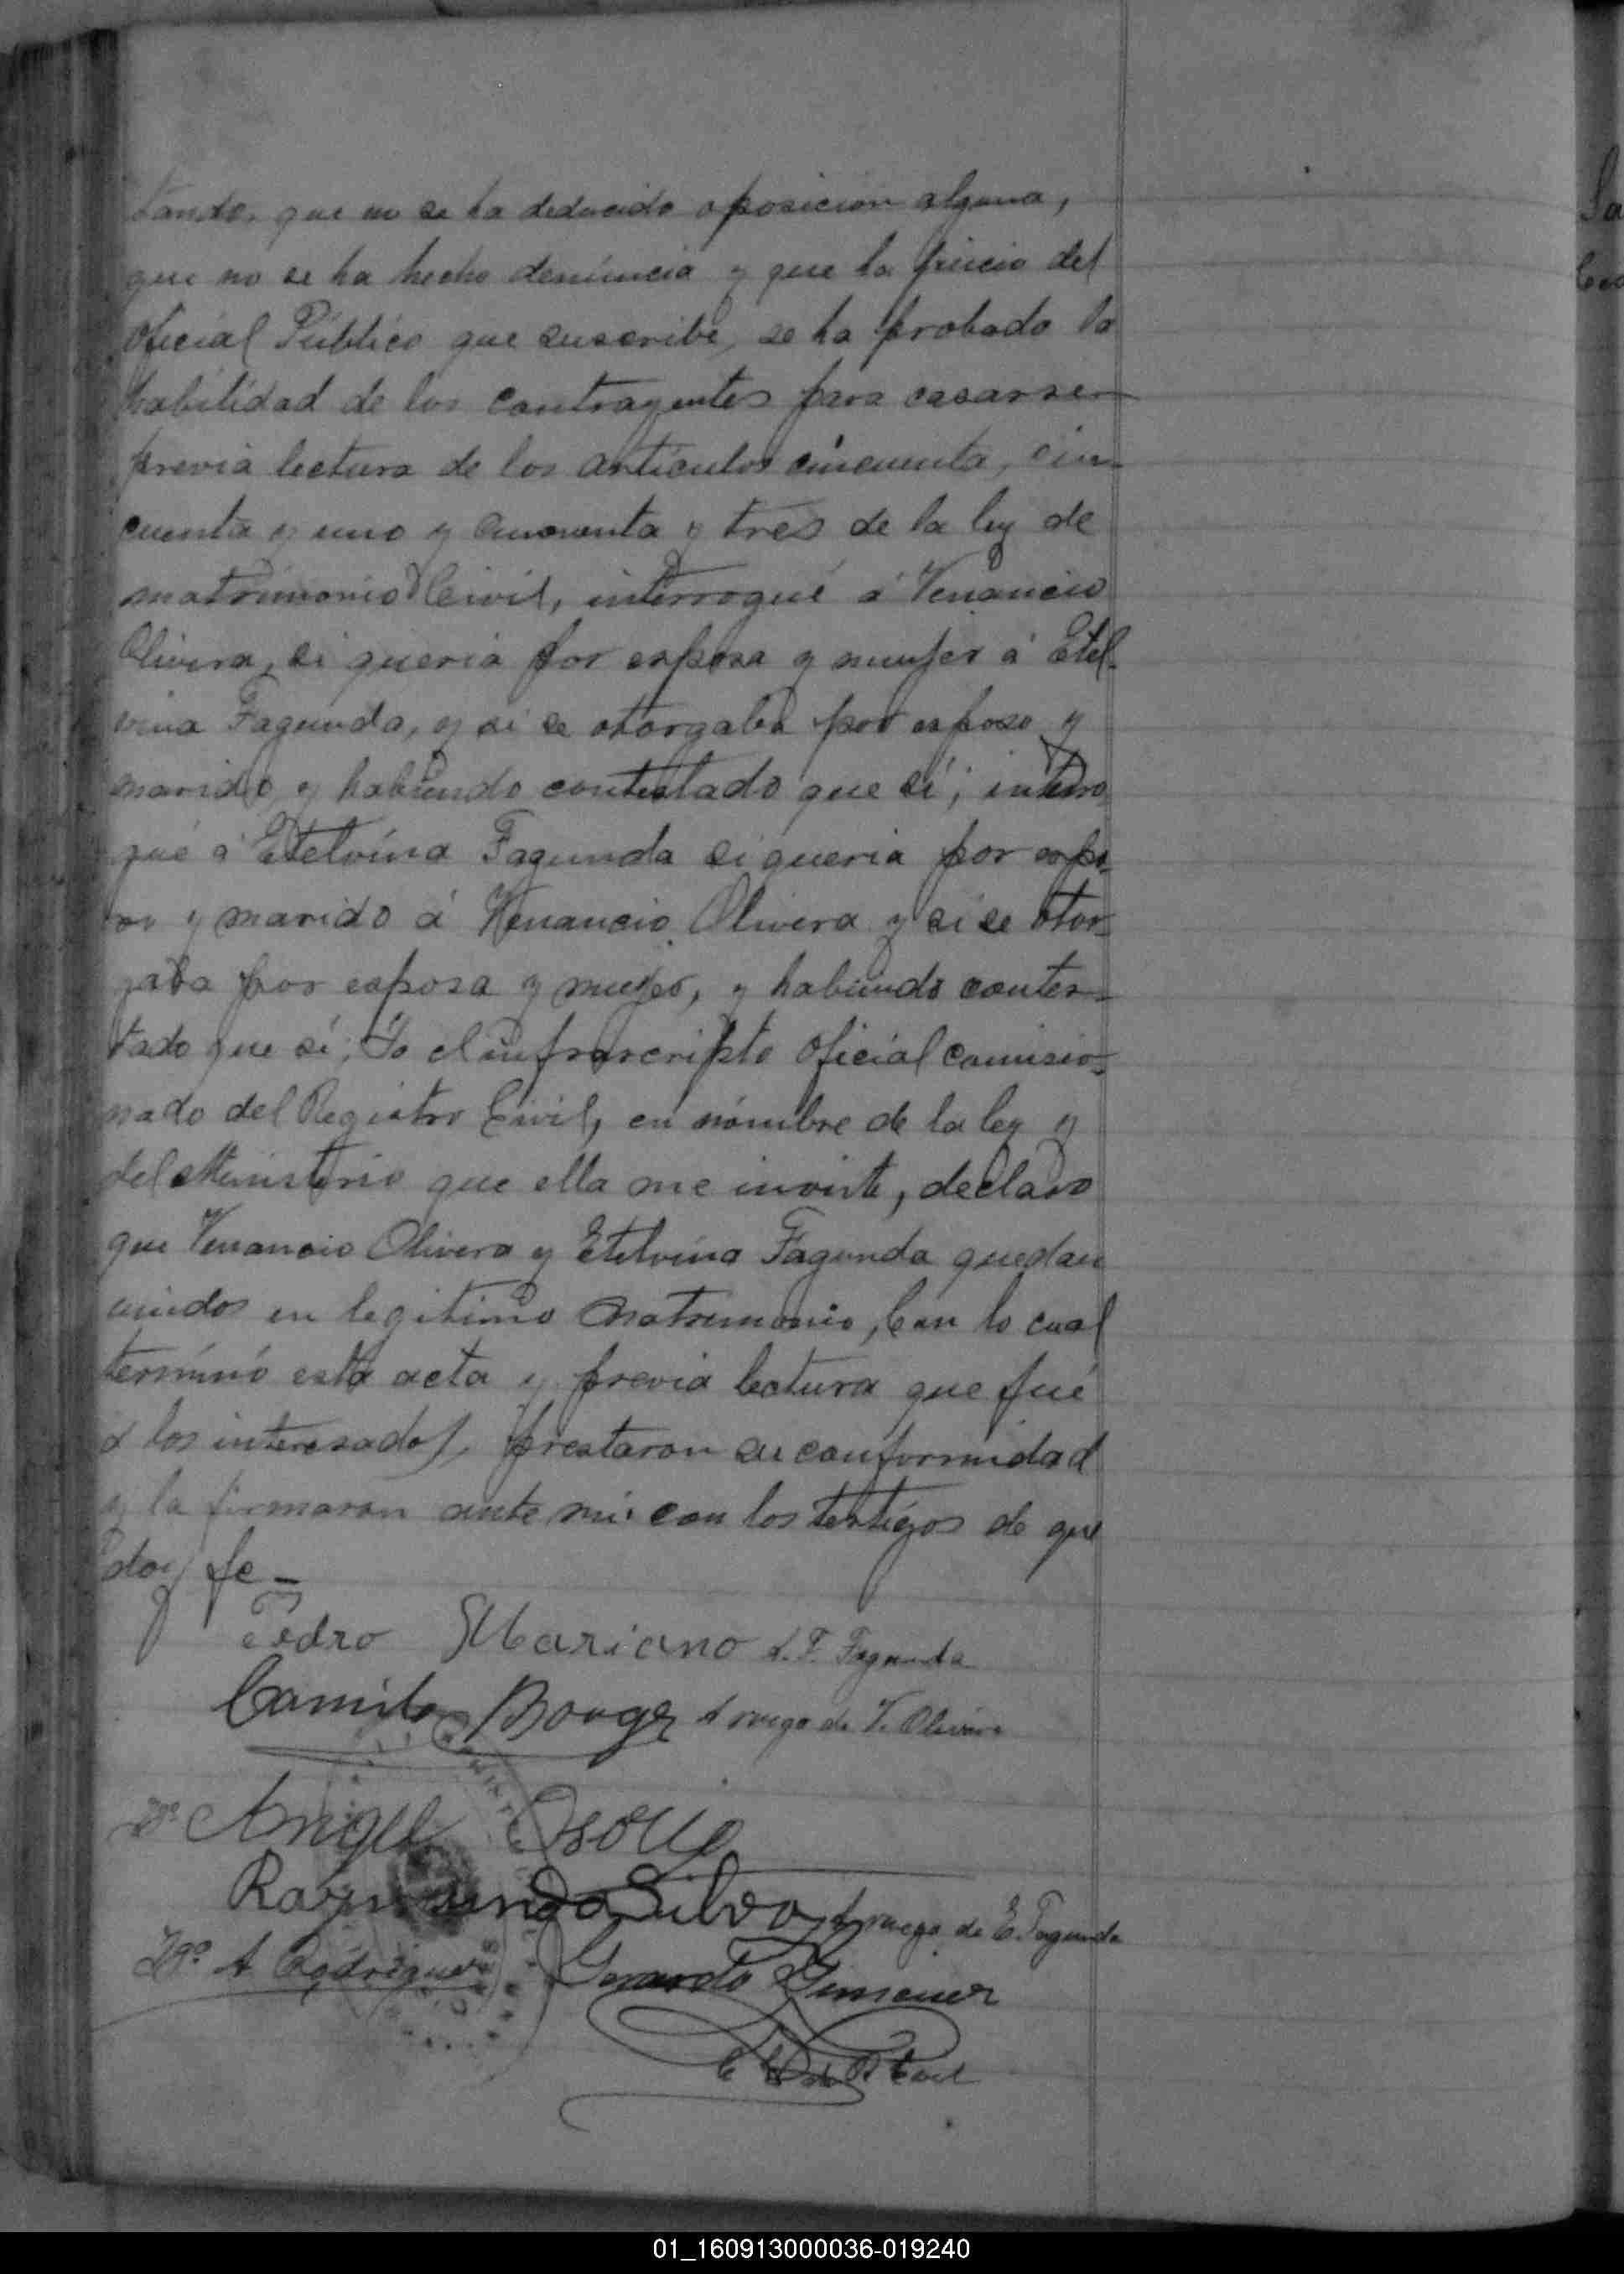 tando, que no se ha deducido oposicion alguna,
que no se ha hecho denúncia y que ha juicio del
Oficial Público que suscribe, se ha probado la
habilidad de los contrayentes para casarse
previa lectura de los artículos cincuenta, cin-
cuenta y uno y cincuenta y tres de la ley de
matrimonio Civil, interrogué á Venancio
Olivera, si queria por esposa y mujer á Etel-
vina Fagunda, y si se otorgaba por esposo y
marido, y habiendo contestado que sí; interro
gué á Etelvína Fagunda si queria por espo-
so y marido á Venancio Olivera y si se otor-
gaba por esposa y mujer, y habiendo contes-
tado que sí; Yo el infrascripto Oficial comisio-
nado del Registro Civil, en nómbre de la ley y
del Ministerio que ella me inviste, declaro
que Venancio Olivera y Etelvina Fagunda quedan
unidos en legítimo Matrimonio, Con lo cual
términó esta acta y previa lectura que fué
á los interesados, prestaron su conformidad
y la firmaron ante mi con los testigos de que
doy fe –
Pedro Mariano F. Fagunda
Camilo Borges A ruego de V. Olivera
Angel
Raymundo Silva A ruego de E. Fagunda
Tgo A Rodriguez Gerardo Gimenez